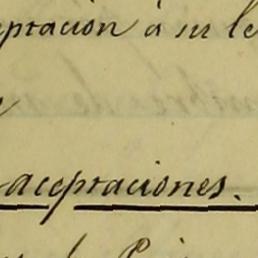 eptacion á su le
aceptaciones.